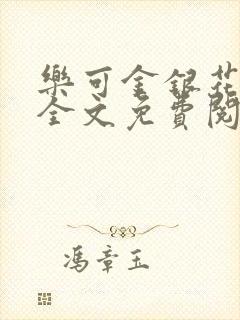 樂可金銀花
全文免費閱
馮章玉